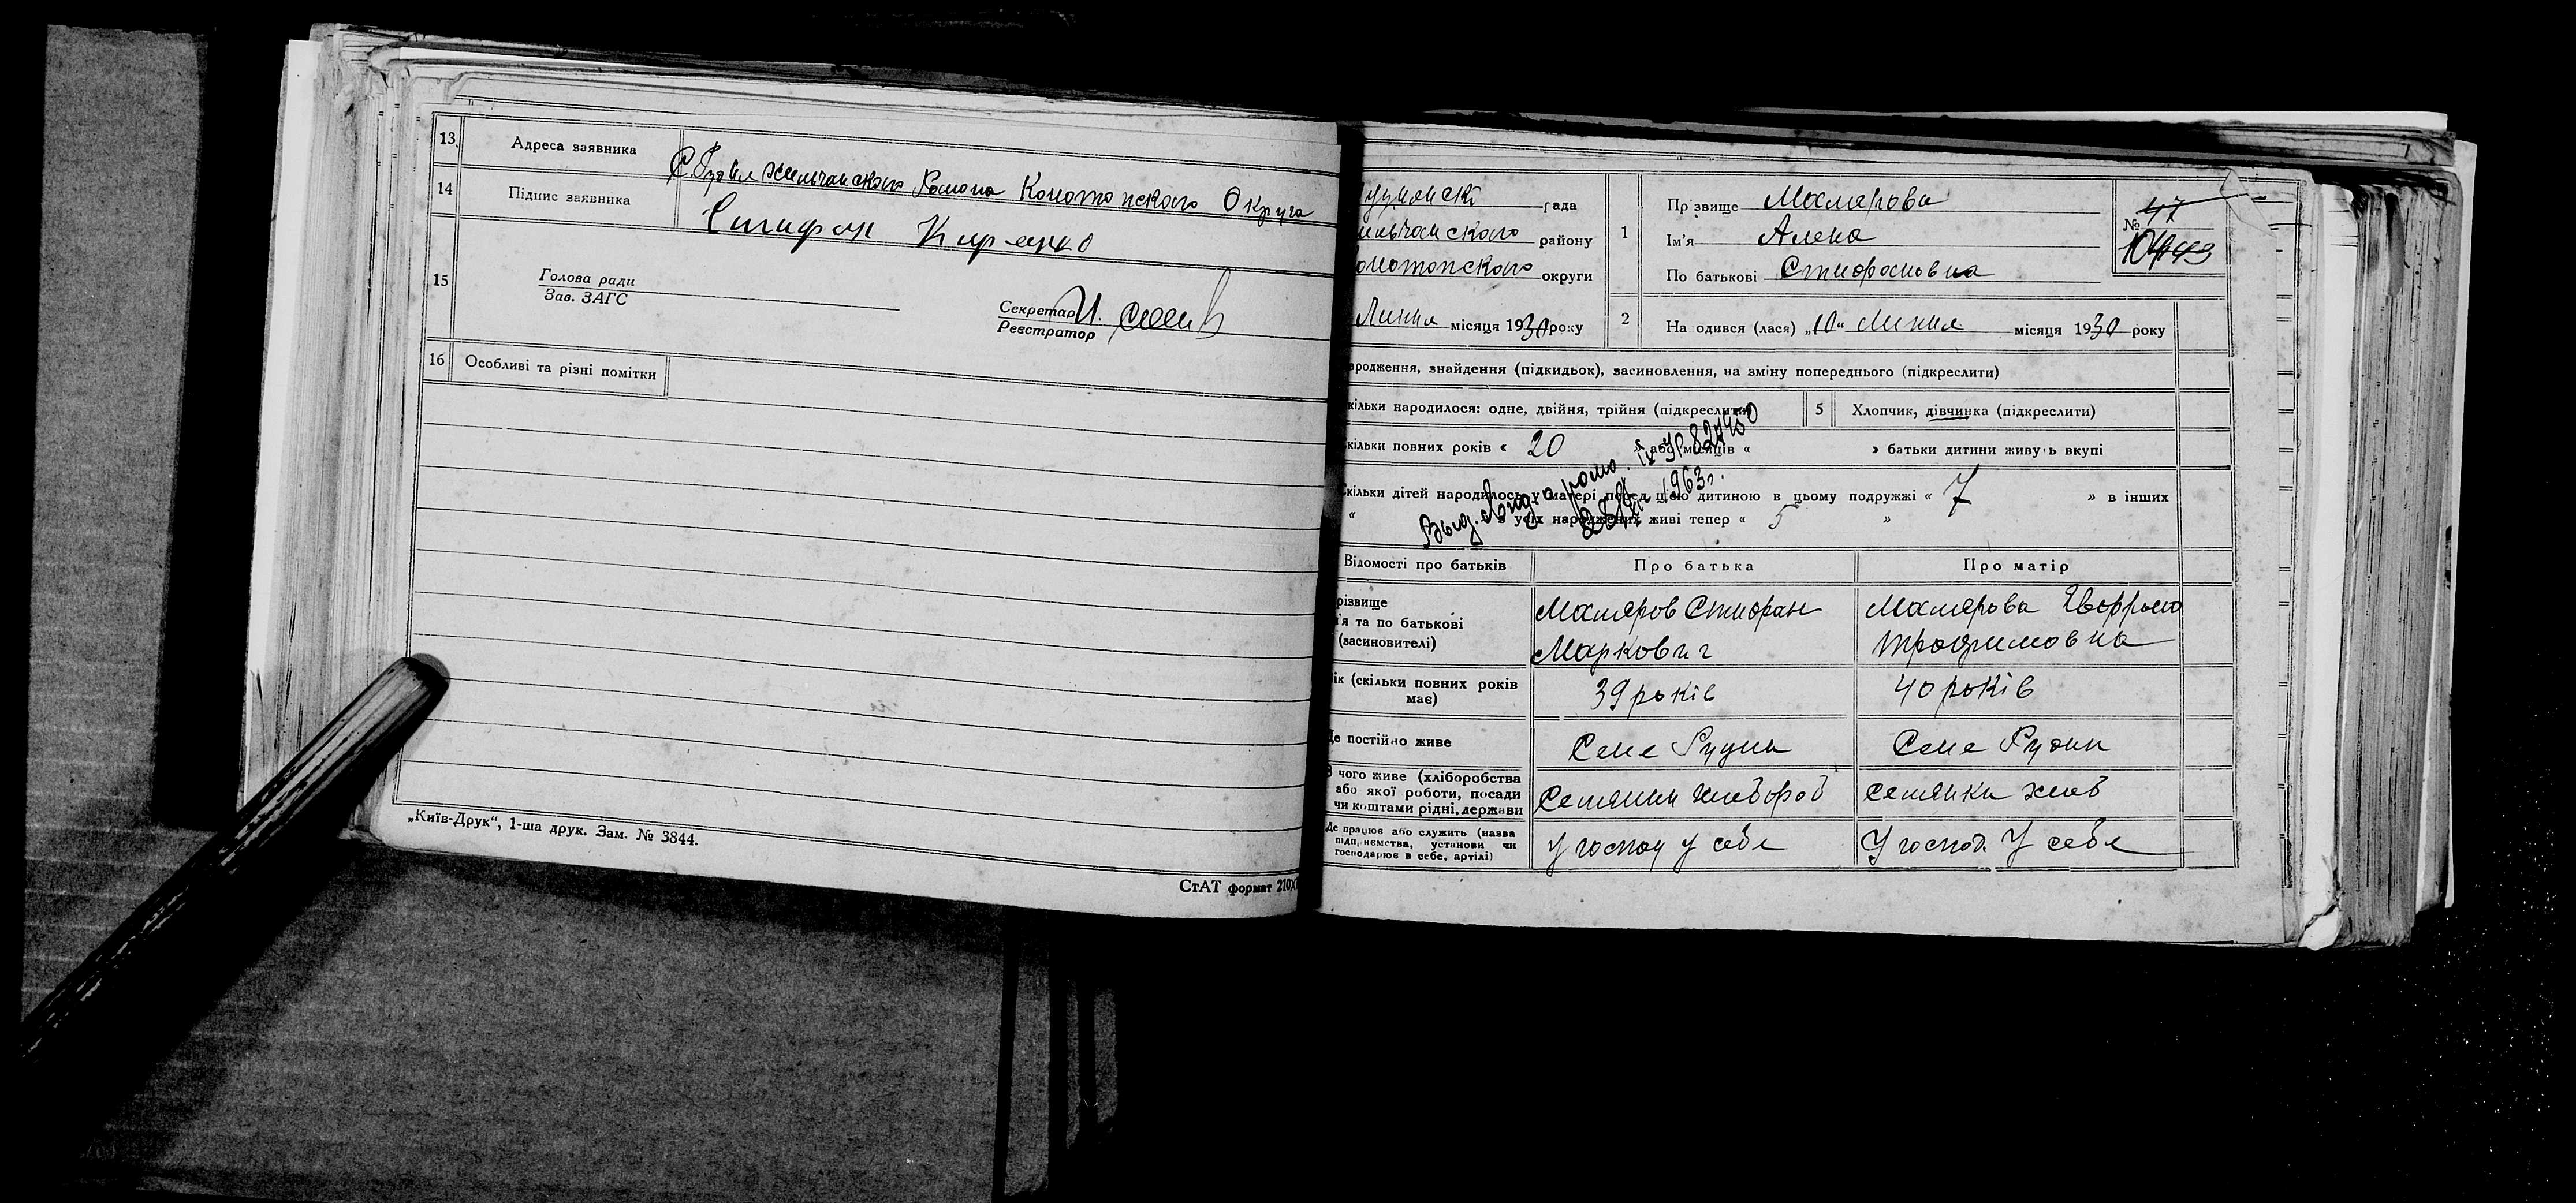 13 Адреса заявника С
14 Підпис заявника Конотопского Округа
Стифан Киренко
15 Голова ради
Зав. ЗАГС
Секретар И.
Реєстратор
16 Особливі та різні помітки
„Київ-Друк“, 1-ша друк. Зам. № 3844.
СтАТ формат 210
рада
району
онотопского округи
1 Прізвище Мамярова
Ім’я Алена
По батькові Стифановна
№ 47
Липня місяця 1930 року
2 На одився (лася) „10“ Липня місяця 1930 року
ародження, знайдення (підкидьок), засиновлення, на зміну попереднього (підкреслити)
кільки народилося: одне, двійня, трійня (підкреслити)
5 Хлопчик, дівчинка (підкреслити)
кільки повних років « 20 » або місяців « » батьки дитини живуть вкупі
кільки дітей народилось у матері перед цією дитиною в цьому подружжі « 7 » в інших
« в усіх народжених живі тепер « 5 »
1963 г.
Відомості про батьків Про батька Про матір
різвище
м’я та по батькові
(засновителі)
Мамяров Стифан
Маркович
Мамярова
Трофимовна
ік (скільки повних років має) 39 років 40 років
Де постійно живе Селе Рудни Селе Рудни
З чого живе (хліборобства
або якої роботи, посади
чи коштами рідні, держави
Селянин хлебороб Селянки хлеб
Де працює або служить (назва
підприємства, установи чи
господарює в себе, артілі)
У господ у себе У господ. У себе